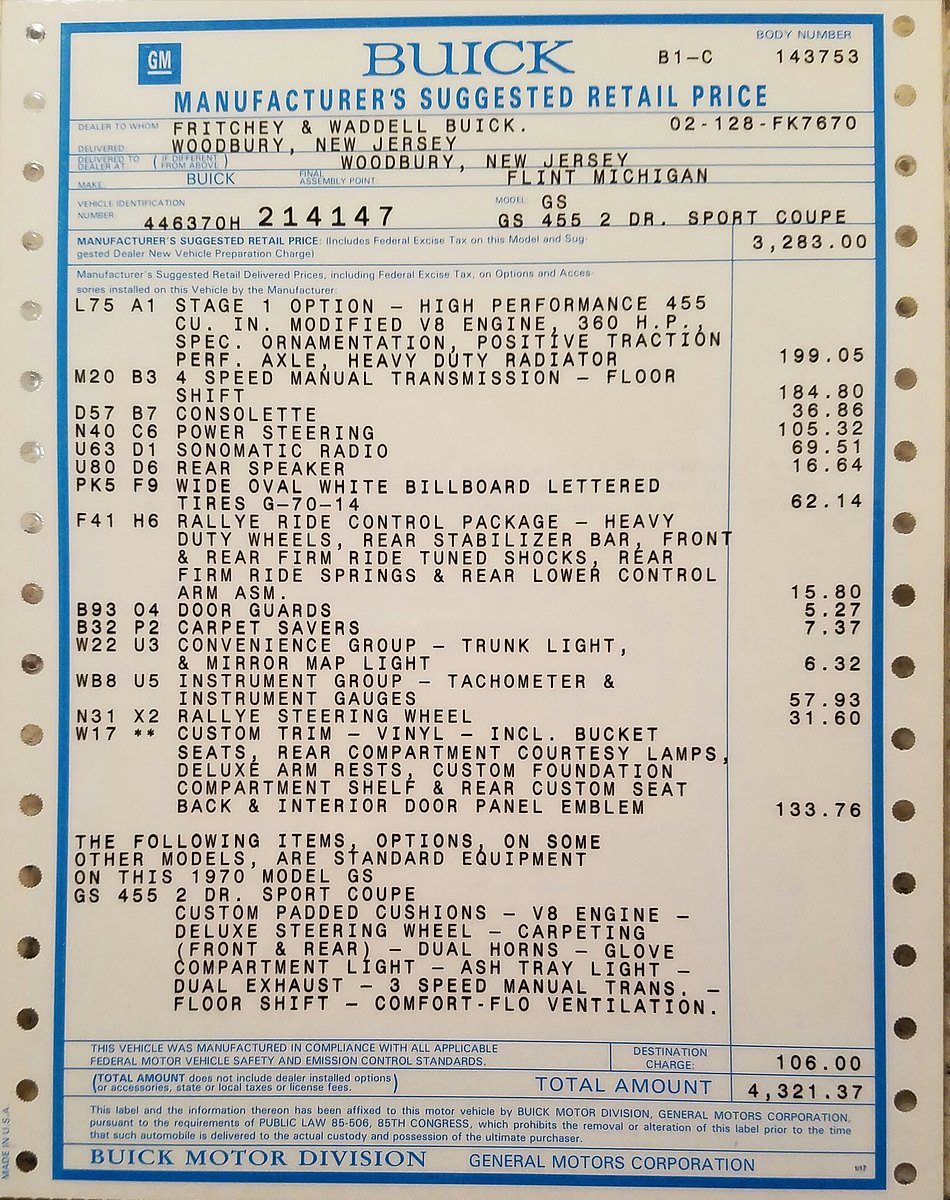 GM
BUICK
BODY NUMBER
B1-C 143753
MANUFACTURER'S SUGGESTED RETAIL PRICE
DEALER TO WHOM DELIVERED: FRITCHEY & WADDELL BUICK. 02-128-FK7670
WOODBURY, NEW JERSEY
DELIVERED TO DEALER AT (IF DIFFERENT FROM ABOVE) WOODBURY, NEW JERSEY
MAKE: BUICK FINAL ASSEMBLY POINT: FLINT MICHIGAN
VEHICLE IDENTIFICATION NUMBER: 446370H 214147
MODEL GS
GS 455 2 DR. SPORT COUPE
MANUFACTURER'S SUGGESTED RETAIL PRICE: (Includes Federal Excise Tax on this Model and Sug-
gested Dealer New Vehicle Preparation Charge) 3,283.00
Manufacturer's Suggested Retail Delivered Prices, including Federal Excise Tax, on Options and Acces-
sories installed on this Vehicle by the Manufacturer:
L75 A1 STAGE 1 OPTION – HIGH PERFORMANCE 455
CU. IN. MODIFIED V8 ENGINE, 360 H.P.,
SPEC. ORNAMENTATION, POSITIVE TRACTION
PERF. AXLE, HEAVY DUTY RADIATOR 199.05
M20 B3 4 SPEED MANUAL TRANSMISSION – FLOOR
SHIFT 184.80
D57 B7 CONSOLETTE 36.86
N40 C6 POWER STEERING 105.32
U63 D1 SONOMATIC RADIO 69.51
U80 D6 REAR SPEAKER 16.64
PK5 F9 WIDE OVAL WHITE BILLBOARD LETTERED
TIRES G-70-14 62.14
F41 H6 RALLYE RIDE CONTROL PACKAGE – HEAVY
DUTY WHEELS, REAR STABILIZER BAR, FRONT
& REAR FIRM RIDE TUNED SHOCKS, REAR
FIRM RIDE SPRINGS & REAR LOWER CONTROL
ARM ASM. 15.80
B93 O4 DOOR GUARDS 5.27
B32 P2 CARPET SAVERS 7.37
W22 U3 CONVENIENCE GROUP – TRUNK LIGHT,
& MIRROR MAP LIGHT 6.32
WB8 U5 INSTRUMENT GROUP – TACHOMETER &
INSTRUMENT GAUGES 57.93
N31 X2 RALLYE STEERING WHEEL 31.60
W17 ** CUSTOM TRIM – VINYL – INCL. BUCKET
SEATS, REAR COMPARTMENT COURTESY LAMPS,
DELUXE ARM RESTS, CUSTOM FOUNDATION
COMPARTMENT SHELF & REAR CUSTOM SEAT
BACK & INTERIOR DOOR PANEL EMBLEM 133.76
THE FOLLOWING ITEMS, OPTIONS, ON SOME
OTHER MODELS, ARE STANDARD EQUIPMENT
ON THIS 1970 MODEL GS
GS 455 2 DR. SPORT COUPE
CUSTOM PADDED CUSHIONS – V8 ENGINE –
DELUXE STEERING WHEEL – CARPETING
(FRONT & REAR) – DUAL HORNS – GLOVE
COMPARTMENT LIGHT – ASH TRAY LIGHT –
DUAL EXHAUST – 3 SPEED MANUAL TRANS. –
FLOOR SHIFT – COMFORT-FLO VENTILATION.
THIS VEHICLE WAS MANUFACTURED IN COMPLIANCE WITH ALL APPLICABLE
FEDERAL MOTOR VEHICLE SAFETY AND EMISSION CONTROL STANDARDS.
DESTINATION CHARGE: 106.00
(TOTAL AMOUNT does not include dealer installed options
or accessories, state or local taxes or license fees.)
TOTAL AMOUNT 4,321.37
This label and the information thereon has been affixed to this motor vehicle by BUICK MOTOR DIVISION, GENERAL MOTORS CORPORATION,
pursuant to the requirements of PUBLIC LAW 85-506, 85TH CONGRESS, which prohibits the removal or alteration of this label prior to the time
that such automobile is delivered to the actual custody and possession of the ultimate purchaser.
BUICK MOTOR DIVISION GENERAL MOTORS CORPORATION
MADE IN U.S.A.